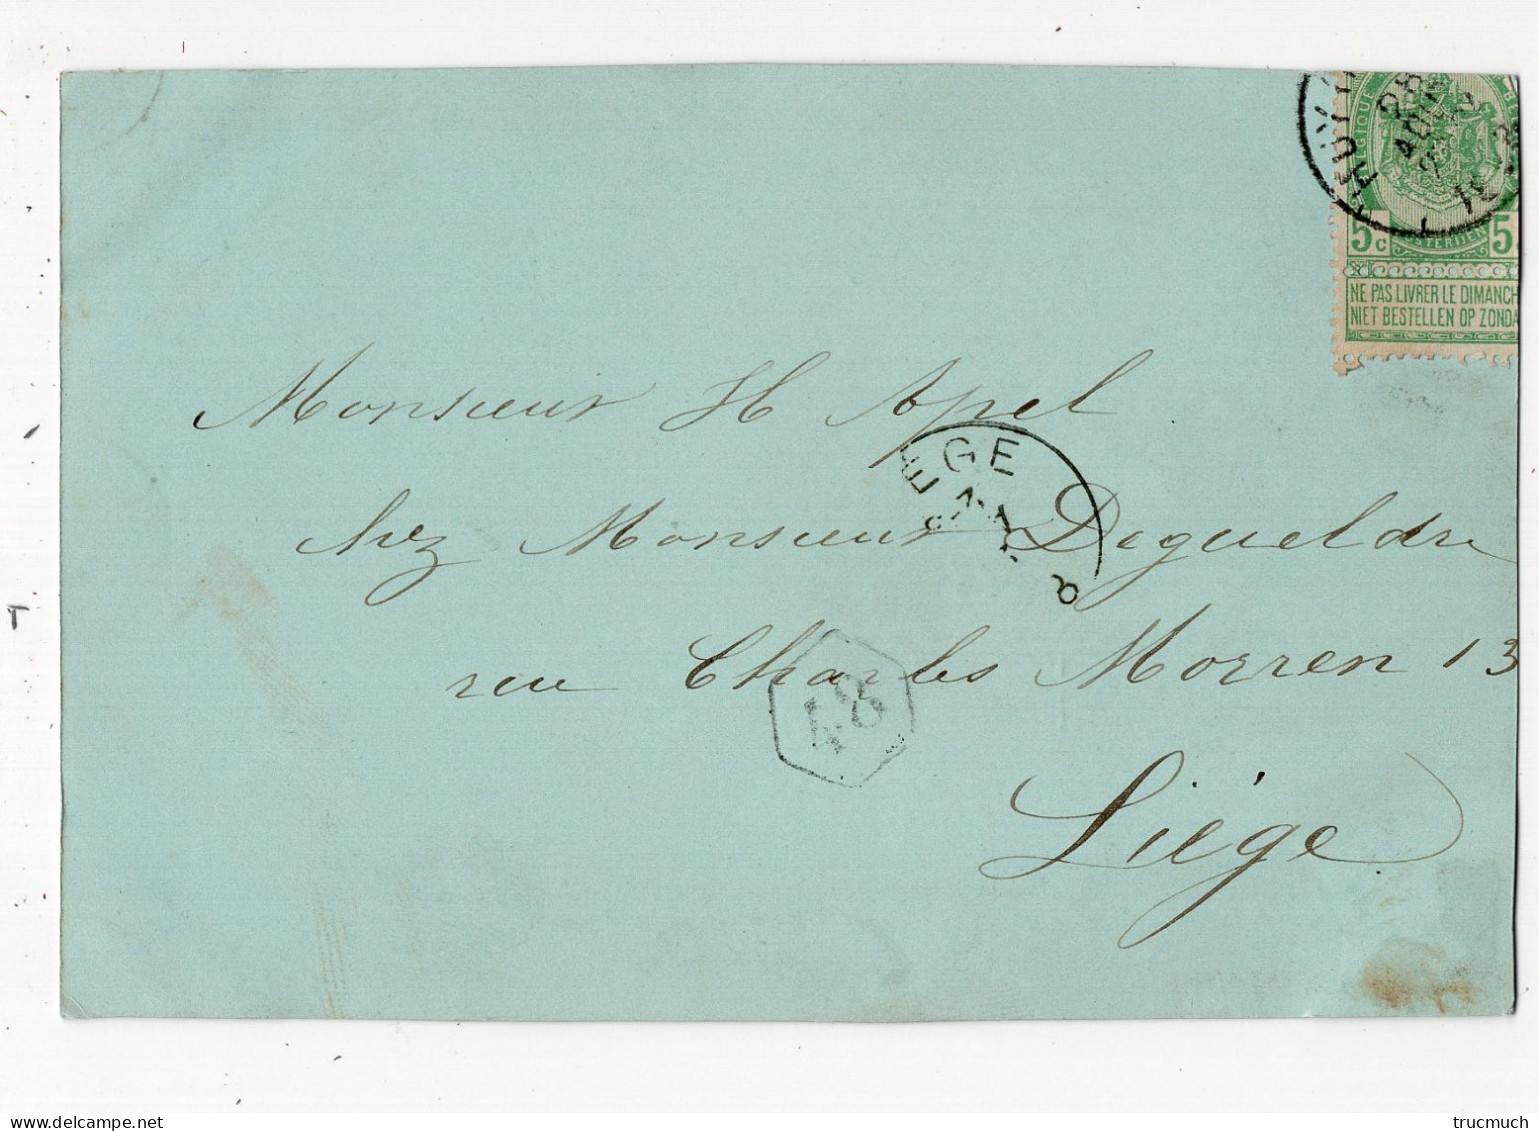 HUY
28
AOUT
BELGIQUE
5c 5
NE PAS LIVRER LE DIMANCH
NIET BESTELLEN OP ZONDA
Monsieur H Apel
EGE
chez Monsieur Degueldre
rue Charles Morren 13
48
Liége
delcampe.net
trucmuch